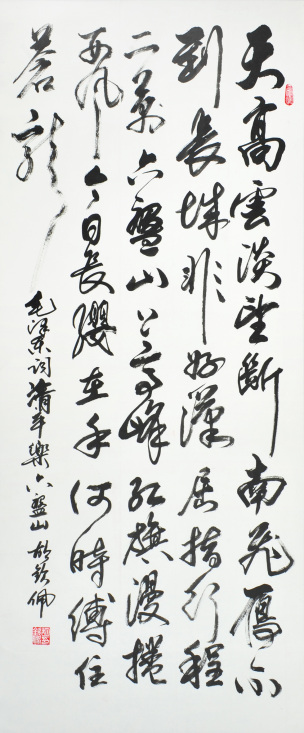 天高雲淡望斷南飛雁不
到長城非好漢屈指行程
二萬六盤山上高峰紅旗漫捲
西風今日長纓在手何時縛住
蒼龍
毛澤東詞清平樂六盤山 佩